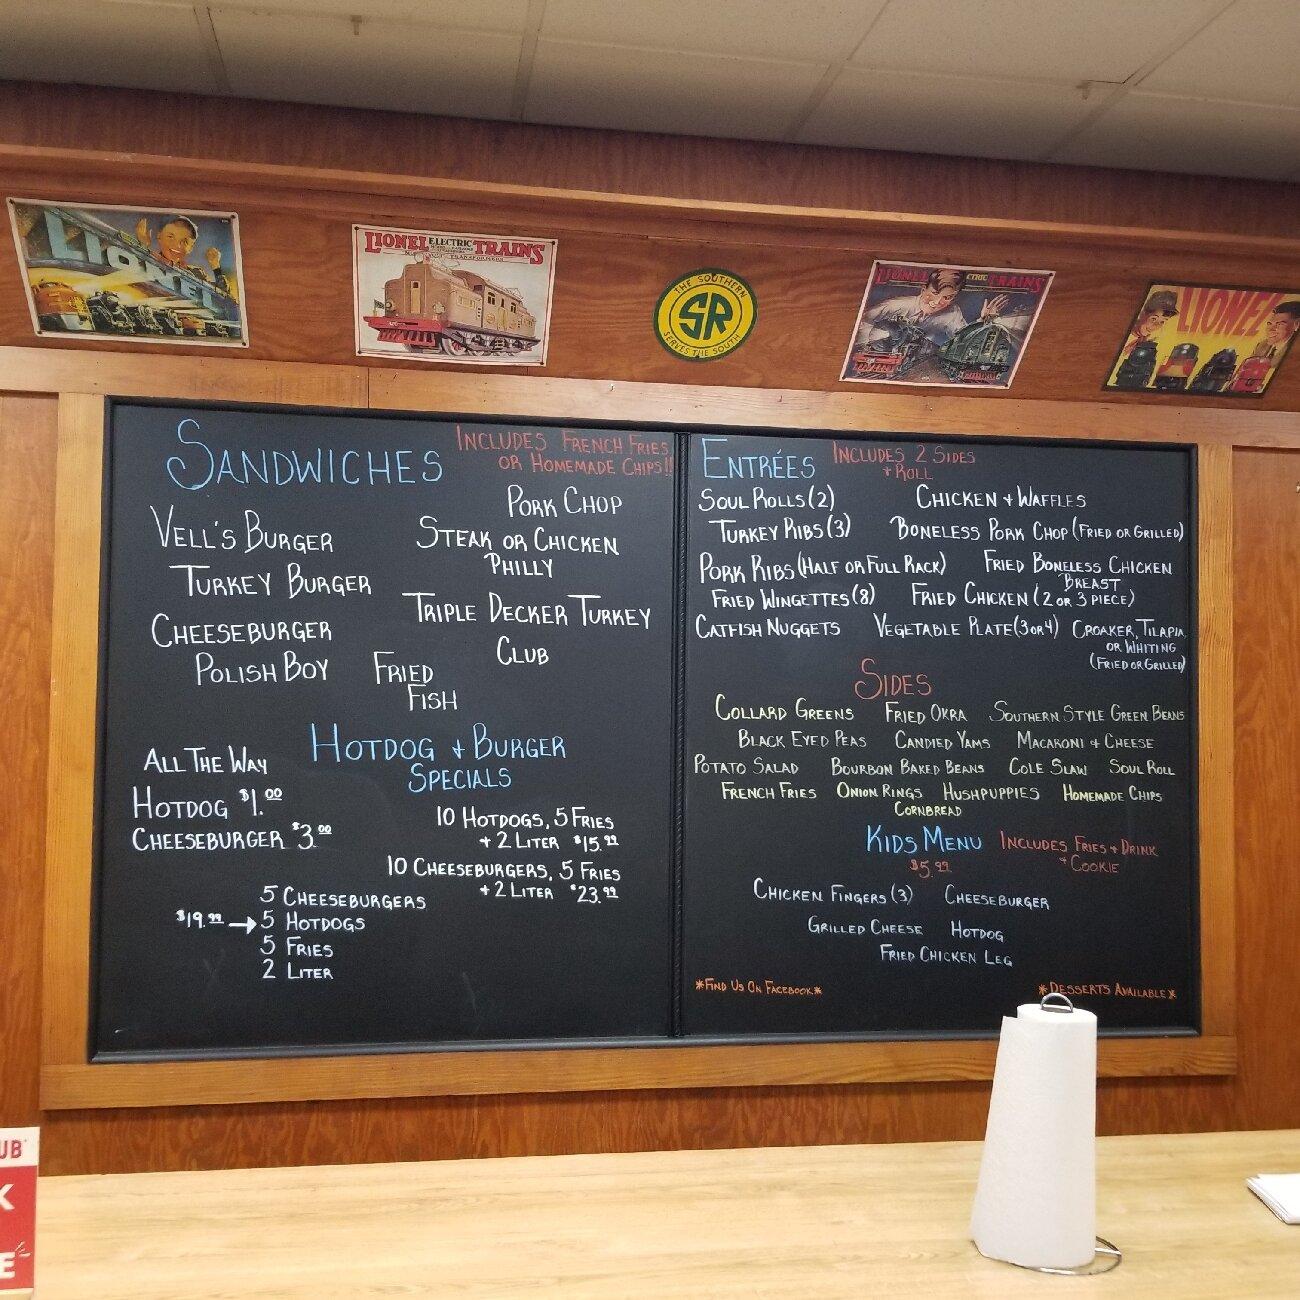 LIONEL
LIONEL ELECTRIC TRAINS
THE SOUTHERN
SR
SERVES THE SOUTH
LIONEL CTRIC TRAINS
LIONEL
SANDWICHES
INCLUDES FRENCH FRIES
OR HOMEMADE CHIPS!!
PORK CHOP
VELL'S BURGER
STEAK OR CHICKEN
PHILLY
TURKEY BURGER
TRIPLE DECKER TURKEY
CLUB
CHEESEBURGER
POLISH BOY
FRIED
FISH
HOTDOG + BURGER
SPECIALS
ALL THE WAY
HOTDOG $1.00
CHEESEBURGER $3.00
10 HOTDOGS, 5 FRIES
+ 2 LITER $15.99
10 CHEESEBURGERS, 5 FRIES
+ 2 LITER $23.99
5 CHEESEBURGERS
$19.99 → 5 HOTDOGS
5 FRIES
2 LITER
ENTRÉES
INCLUDES 2 SIDES
+ ROLL
SOUL ROLLS (2) CHICKEN + WAFFLES
TURKEY RIBS (3) BONELESS PORK CHOP (FRIED OR GRILLED)
PORK RIBS (HALF OR FULL RACK) FRIED BONELESS CHICKEN
BREAST
FRIED WINGETTES (8) FRIED CHICKEN (2 OR 3 PIECE)
CATFISH NUGGETS VEGETABLE PLATE (3 OR 4) CROAKER, TILAPIA
OR WHITING
(FRIED OR GRILLED)
SIDES
COLLARD GREENS FRIED OKRA SOUTHERN STYLE GREEN BEANS
BLACK EYED PEAS CANDIED YAMS MACARONI + CHEESE
POTATO SALAD BOURBON BAKED BEANS COLE SLAW SOUL ROLL
FRENCH FRIES ONION RINGS HUSHPUPPIES HOMEMADE CHIPS
CORNBREAD
KIDS MENU INCLUDES FRIES + DRINK
$5.99 + COOKIE
CHICKEN FINGERS (3) CHEESEBURGER
GRILLED CHEESE HOTDOG
FRIED CHICKEN LEG
*FIND US ON FACEBOOK* *DESSERTS AVAILABLE*
UB
K
E